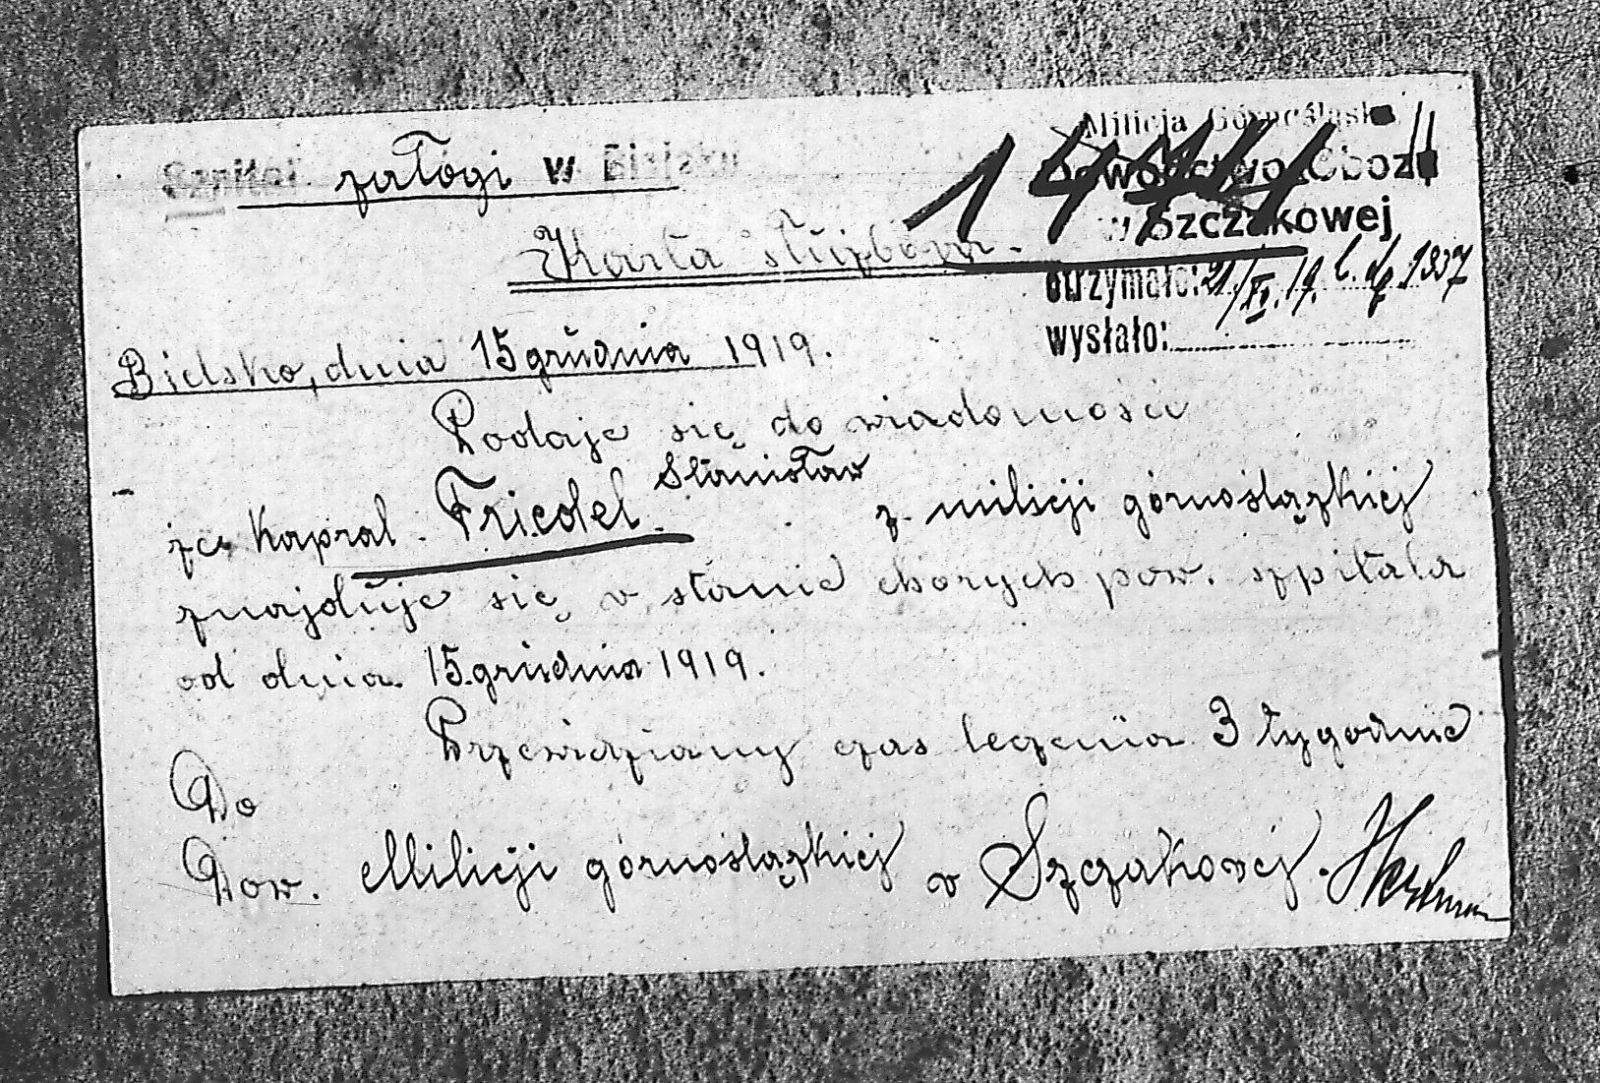 Szpital załogi w Bielsku
Milicja Górnośląska
Dowództwo Obozu
w Szczakowej
otrzymało: 21/XII.19. L. dz. 1937
wysłało:
Karta służbowa.
Bielsko, dnia 15 grudnia 1919.
Podaje się do wiadomości
że Kapral. Friedel Stanisław z milicji górnośląskiej
znajduje się w stanie chorych pow. szpitala
od dnia 15.grudnia 1919.
Przewidziany czas leczenia 3 tygodnie
Do
Dow. Milicji górnośląskiej w Szczakowej.